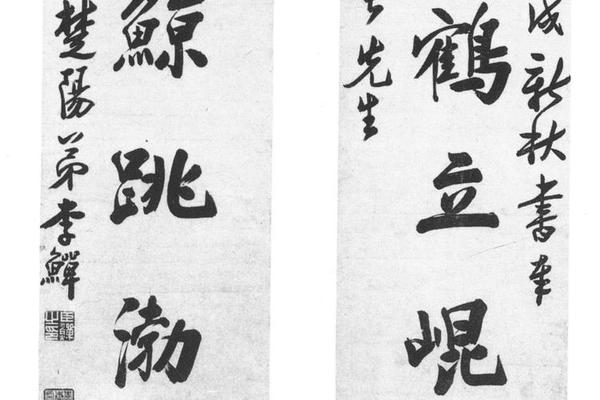 戌新秋書奉
鶴立崐
先生
鯨跳渤
楚陽弟李鱓